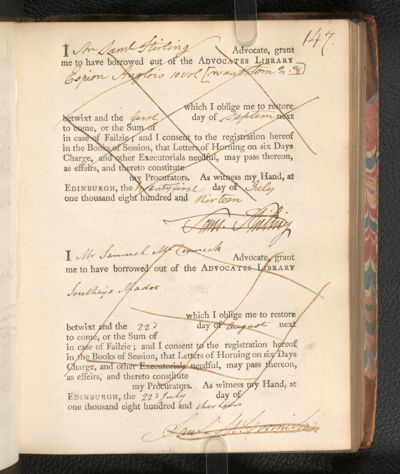 147.
I Mr Saml Stirling Advocate, grant
me to have borrowed out of the ADVOCATES LIBRARY
Espion Anglois 10 vol [wants tom 2. & 8]
which I oblige me to restore
betwixt and the day of Septem next
to come, or the Sum of
in case of Failzie; and I consent to the registration hereof
in the Books of Session, that Letters of Horning on six Days
Charge, and other Executorials needful, may pass thereon,
as effeirs, and thereto constitute
my Procurators. As witness my Hand, at
EDINBURGH, the twenty first day of July
one thousand eight hundred and thirteen
Saml. Stirling
I Mr Samuel McCormick Advocate, grant
me to have borrowed out of the ADVOCATES LIBRARY
Southeys Madoc
which I oblige me to restore
betwixt and the 22d day of August next
to come, or the Sum of
in case of Failzie; and I consent to the registration hereof
in the Books of Session, that Letters of Horning on six Days
Charge, and other Executorials needful, may pass thereon,
as effeirs, and thereto constitute
my Procurators. As witness my Hand, at
EDINBURGH, the 22d July day of
one thousand eight hundred and thirteen
Saml McCormick